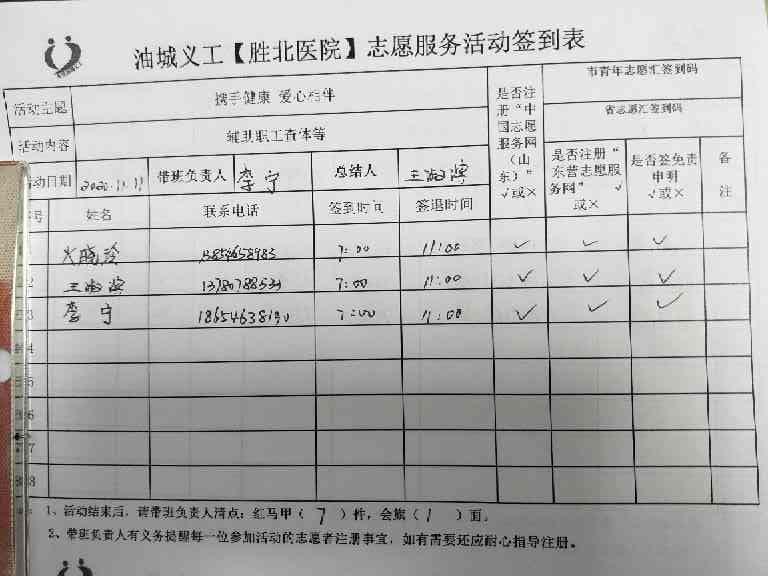 油城义工【胜北医院】志愿服务活动签到表
活动主题 携手健康 爱心相伴 是否注册“中国志愿服务网（山东）”√或× 市青年志愿汇签到码
省志愿汇签到码
活动内容 辅助职工查体等 是否注册“东营志愿服务网” √或× 是否签免责申明 √或× 备注
活动日期 2020.11.11 带班负责人 李宁 总结人 王淑滨
号 姓名 联系电话 签到时间 签退时间
火晓玲 13854658983 7:00 11:00 ✓ ✓ ✓
2 王淑滨 13780788533 7:00 11:00 ✓ ✓ ✓
3 李宁 18654638190 7:00 11:00 ✓ ✓ ✓
4
5
6
7
8
1、活动结束后，请带班负责人清点：红马甲（7）件，会旗（1）面。
2、带班负责人有义务提醒每一位参加活动的志愿者注册事宜，如有需要还应耐心指导注册。